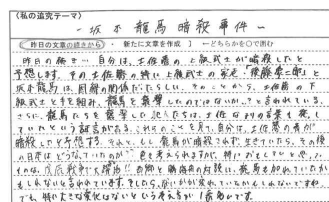 〈私の追究テーマ〉
～坂本龍馬暗殺事件～
昨日の文章の続きから ・ 新たに文章を作成 ）←どちらかを○で囲む
昨日の続き… 自分は、土佐藩の上級武士が暗殺したと
予想します。その土佐藩の特に上級武士の家老「後藤象二郎」と
坂本龍馬は、因縁の関係だったらしい。そのことから、土佐藩の下
級武士と手を組み、龍馬を襲撃したのではないか…？と言われている。
さらに、龍馬たちを襲撃した犯人たちは、土佐なまりの言葉を発し
ていたという証言がある。これらのことを見て、自分は、土佐藩の者が
暗殺したと予想する。それと、もし龍馬が暗殺されず生きていたら、その後
の日本はどうなっていたのか
戊辰戦争で大活躍!! 西郷と勝海舟の対談に、龍馬も加わっていたか
もしれないと言われています。そしたら、
でも、特に大きな変化はないという考え方が